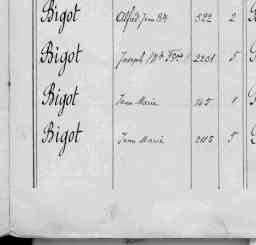 Bigot Alfred Jean 522 2
Bigot Joseph 2201 5
Bigot Jean Marie 145 1
Bigot Jean Marie 2115 5